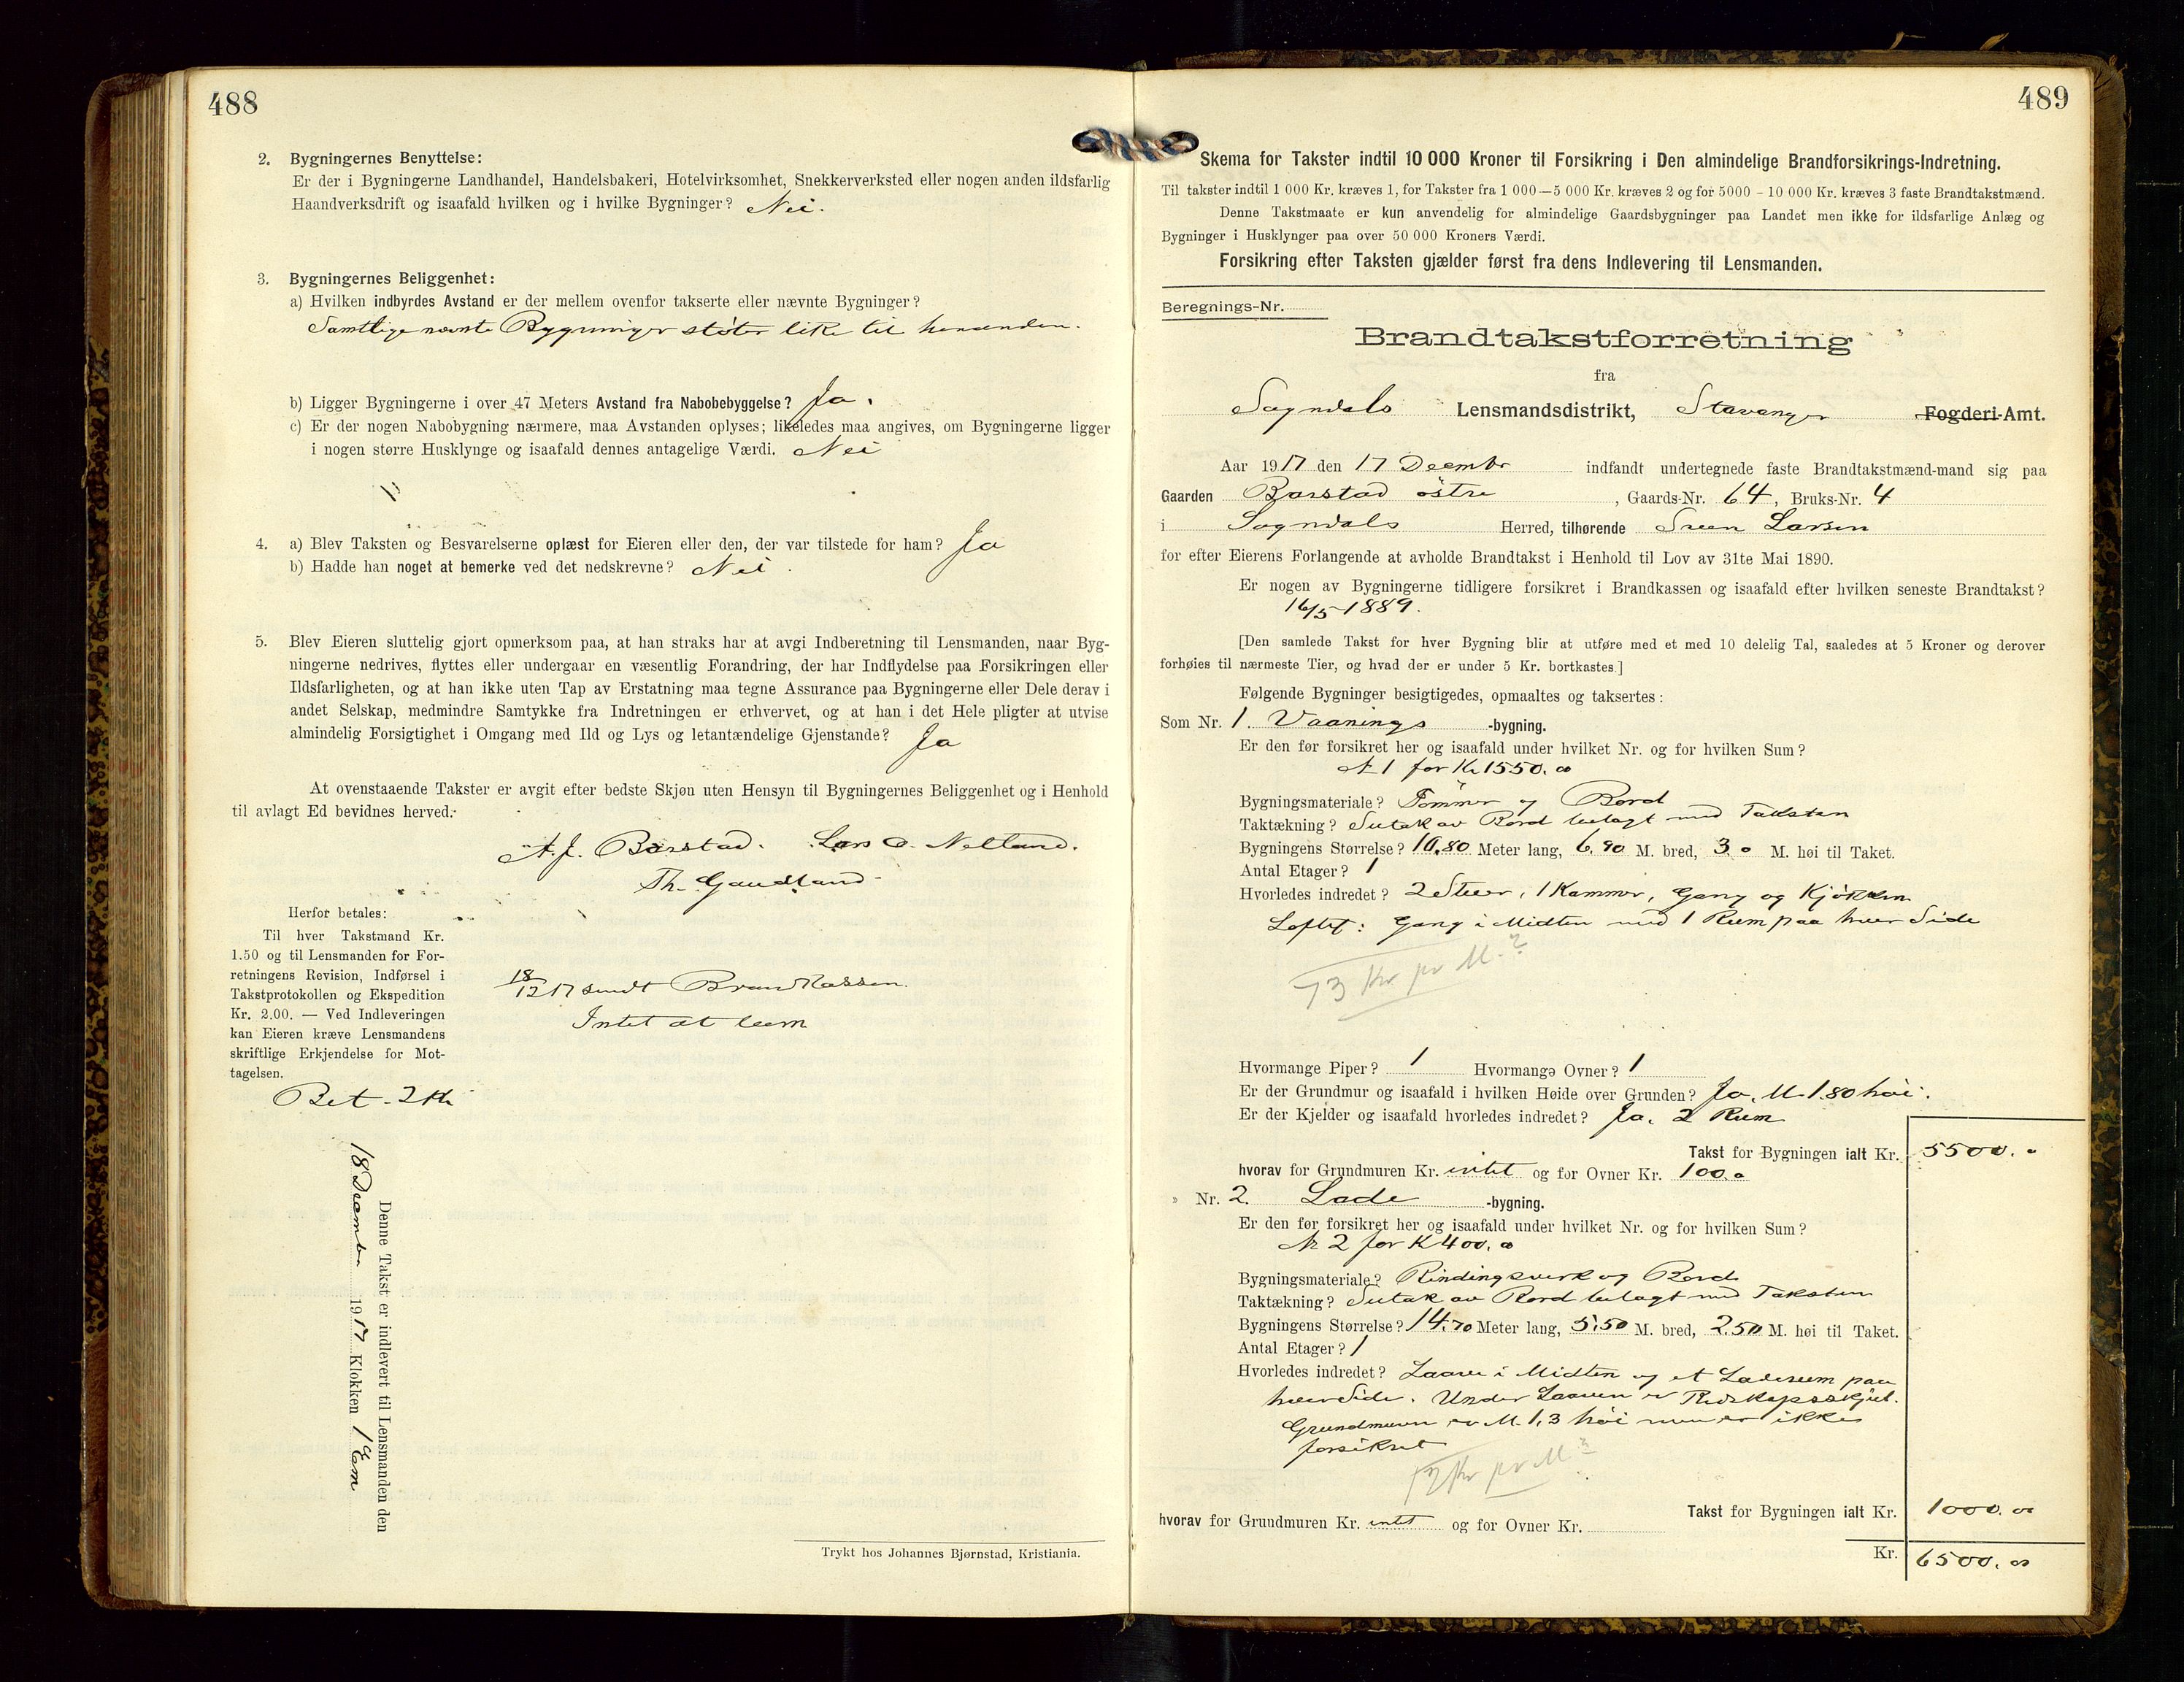 488
2. Bygningernes Benyttelse:
Er der i Bygningerne Landhandel, Handelsbakeri, Hotelvirksomhet, Snekkerverksted eller nogen anden ildsfarlig
Haandverksdrift og isaafald hvilken og i hvilke Bygninger? Nei.
3. Bygningernes Beliggenhet:
a) Hvilken indbyrdes Avstand er der mellem ovenfor takserte eller nævnte Bygninger?
Samtlige nævnte Bygninger støter like til hinanden.
b) Ligger Bygningerne i over 47 Meters Avstand fra Nabobebyggelse? Ja.
c) Er der nogen Nabobygning nærmere, maa Avstanden oplyses; likeledes maa angives, om Bygningerne ligger
i nogen større Husklynge og isaafald dennes antagelige Værdi. Nei
4. a) Blev Taksten og Besvarelserne oplæst for Eieren eller den, der var tilstede for ham? Ja
b) Hadde han noget at bemerke ved det nedskrevne? Nei.
5. Blev Eieren sluttelig gjort opmerksom paa, at han straks har at avgi Indberetning til Lensmanden, naar Byg-
ningerne nedrives, flyttes eller undergaar en væsentlig Forandring, der har Indflydelse paa Forsikringen eller
Ildsfarligheten, og at han ikke uten Tap av Erstatning maa tegne Assurance paa Bygningerne eller Dele derav i
andet Selskap, medmindre Samtykke fra Indretningen er erhvervet, og at han i det Hele pligter at utvise
almindelig Forsigtighet i Omgang med Ild og Lys og letantændelige Gjenstande? Ja
At ovenstaaende Takster er avgit efter bedste Skjøn uten Hensyn til Bygningernes Beliggenhet og i Henhold
til avlagt Ed bevidnes herved.
A. J. Barstad. Lars O. Netland.
Th. Gaudland
Herfor betales:
Til hver Takstmand Kr.
1.50 og til Lensmanden for For-
retningens Revision, Indførsel i
Takstprotokollen og Ekspedition
Kr. 2.00. — Ved Indleveringen
kan Eieren kræve Lensmandens
skriftlige Erkjendelse for Mot-
tagelsen.
18/12 17 sendt Brandkassen.
Intet at bem
Bet. 2 Kr
Denne Takst er indlevert til Lensmanden den
18 December 1917 Klokken 1 Em
Trykt hos Johannes Bjørnstad, Kristiania.
489
Skema for Takster indtil 10 000 Kroner til Forsikring i Den almindelige Brandforsikrings-Indretning.
Til takster indtil 1 000 Kr. kræves 1, for Takster fra 1 000—5 000 Kr. kræves 2 og for 5000 - 10 000 Kr. kræves 3 faste Brandtakstmænd.
Denne Takstmaate er kun anvendelig for almindelige Gaardsbygninger paa Landet men ikke for ildsfarlige Anlæg og
Bygninger i Husklynger paa over 50 000 Kroners Værdi.
Forsikring efter Taksten gjælder først fra dens Indlevering til Lensmanden.
Beregnings-Nr.
Brandtakstforretning
fra
Sogndals Lensmandsdistrikt, Stavanger Fogderi-Amt.
Aar 1917 den 17 Decembr indfandt undertegnede faste Brandtakstmænd-mand sig paa
Gaarden Barstad østre, Gaards-Nr. 64, Bruks-Nr. 4
i Sogndals Herred, tilhørende Sven Larsen
for efter Eierens Forlangende at avholde Brandtakst i Henhold til Lov av 31te Mai 1890.
Er nogen av Bygningerne tidligere forsikret i Brandkassen og isaafald efter hvilken seneste Brandtakst?
16/5 1889.
[Den samlede Takst for hver Bygning blir at utføre med et med 10 delelig Tal, saaledes at 5 Kroner og derover
forhøies til nærmeste Tier, og hvad der er under 5 Kr. bortkastes.]
Følgende Bygninger besigtigedes, opmaaltes og taksertes:
Som Nr. 1. Vaanings -bygning.
Er den før forsikret her og isaafald under hvilket Nr. og for hvilken Sum?
N 1 for Kr 1550.00
Bygningsmateriale? Tømmer og Bord
Taktækning? Sutak av Bord belagt med Taksten
Bygningens Størrelse? 10.80 Meter lang, 6.90 M. bred, 3.0 M. høi til Taket.
Antal Etager? 1
Hvorledes indredet? 2 Stuer, 1 Kammer, Gang og Kjøkken
Loftet: Gang i Midten med 1 Rum paa hver Side
73 Kr pr M.²
Hvormange Piper? 1 Hvormange Ovner? 1
Er der Grundmur og isaafald i hvilken Høide over Grunden? Ja, M. 1.80 høi.
Er der Kjelder og isaafald hvorledes indredet? Ja. 2 Rum
Takst for Bygningen ialt Kr. 5500.0
hvorav for Grundmuren Kr. intet og for Ovner Kr. 100.0
» Nr. 2. Lade -bygning.
Er den før forsikret her og isaafald under hvilket Nr. og for hvilken Sum?
N 2 for K 400.00
Bygningsmateriale? Bindingsverk og Bord
Taktækning? Sutak av Bord belagt med Taksten
Bygningens Størrelse? 14.70 Meter lang, 5.50 M. bred, 2.50 M. høi til Taket.
Antal Etager? 1
Hvorledes indredet? Laave i Midten og et Laderum paa
hver Side. Under Laaven er Redskapsskjul.
Grundmuren er M. 1,3 høi men er ikke
forsikret
12 Kr pr M²
Takst for Bygningen ialt Kr. 1000.00
hvorav for Grundmuren Kr. intet og for Ovner Kr.
Kr. 6500.00